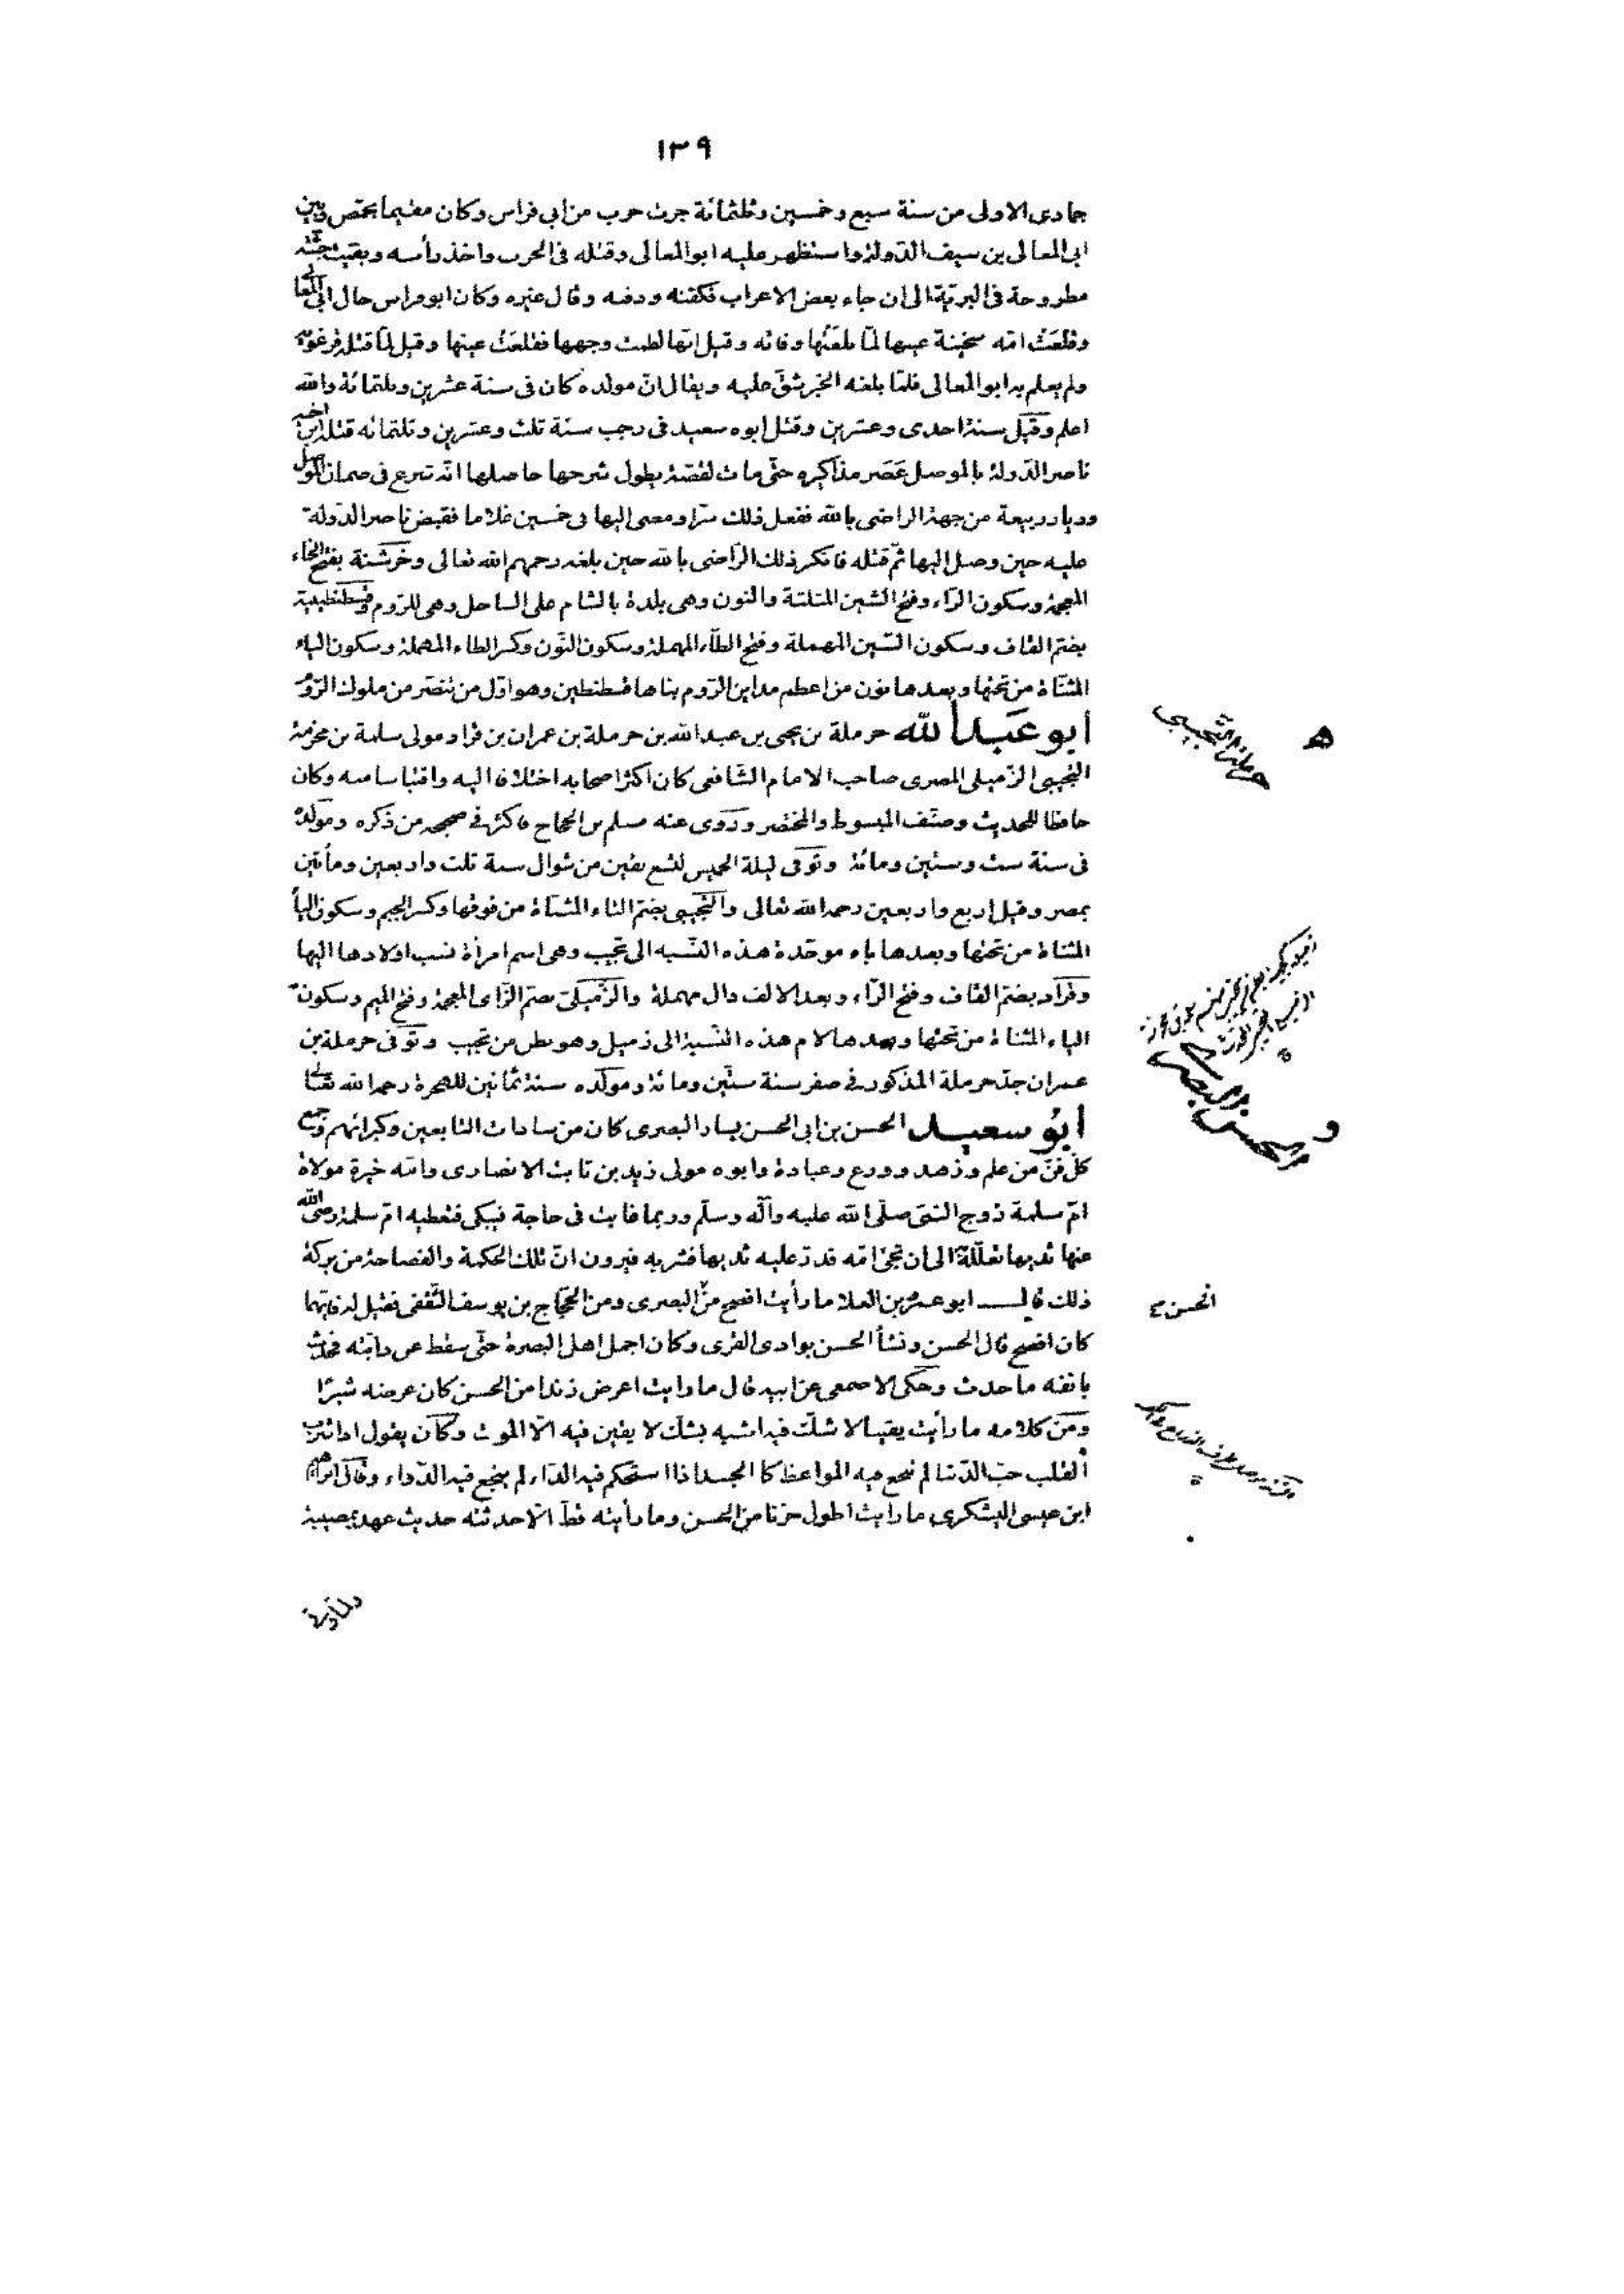 ١٣٩
جمادى الاولى من سنة سبع وخمسين وثلثمائة جرت حرب من ابى فراس وكان مقيما بحمص وبين
ابى المعالى بن سيف الدّولة واستظهر عليه ابو المعالى وقتله فى الحرب واخذ رأسه وبقيت جثّته
مطروحة فى البرّيّة الى ان جاء بعض الاعراب فكفّنه ودفنه وقال غيره وكان ابو فراس خال ابى المعالى
وقلعت امّه سخينة عينها لمّا بلغتها وفاته وقيل انّها لطمت وجهها فقلعت عينها وقيل لمّا قتله فرغويه
ولم يعلم به ابو المعالى فلمّا بلغه الخبر شقّ عليه ويقال انّ مولده كان فى سنة عشرين وثلثمائة والله
اعلم وقيل سنة احدى وعشرين وقتل ابوه سعيد فى رجب سنة ثلث وعشرين وثلثمائه قتله ابن اخيه
ناصر الدّولة بالموصل عَصَر مذاكيره حتّى مات لقصّة يطول شرحها حاصلها انّه شرع فى ضمان الموصل
وديار ربيعة من جهة الراضى بالله ففعل ذلك سرّا ومضى اليها فى خمسين غلاما فقبض ناصر الدّولة
عليه حين وصل اليها ثمّ قتله فانكر ذلك الرّاضى بالله حين بلغه رحمهم الله تعالى وخَرْشَنة بفتح الخاء
المعجمة وسكون الرّاء وفتح الشين المثلثة والنون وهى بلدة بالشام على الساحل وهى للرّوم وقسطنطينية
بضمّ القاف وسكون السّين المهملة وفتح الطّاء المهملة وسكون النّون وكسر الطاء المهملة وسكون الياء
المثنّاة من تحتها وبعدها نون من اعظم مداين الرّوم بناها قسطنطين وهو اوّل من تنصّر من ملوك الرّوم
أبو عَبد اللّه حرملة بن يحيى بن عبد الله بن حرملة بن عمران بن قراد مولى سلمة بن مخرمة
التجيبى الزّميلى المصرى صاحب الامام الشّافعى كان اكثر اصحابه اختلافا اليه واقتباسا منه وكان
حافظا للحديث وصنّف المبسوط والمختصر وروى عنه مسلم بن الحجاج فاكثر فى صحيحه من ذكره ومولده
فى سنة ستّ وستّين ومائة وتوفّى ليلة الخميس لتسع بقين من شوال سنة ثلث واربعين ومأتين
بمصر وقيل اربع واربعين رحمه الله تعالى والتّجيبى بضمّ التاء المثنّاة من فوقها وكسر الجيم وسكون اليأ
المثناة من تحتها وبعدها باء موحّدة هذه النّسبه الى تجيب وهى اسم امرأة نسب اولادها اليها
وقراد بضمّ القاف وفتح الرّاء وبعد الالف دال مهملة والزّميلى بضمّ الزّاى المعجمة وفتح الميم وسكون
الياء المثناة من تحتها وبعدها لام هذه النّسبة الى زميل وهو بطن من تجيب وتوفّى حرملة بن
عمران جدّ حرملة المذكور فى صفر سنة ستّين ومائة ومولده سنة ثمانين للهجرة رحمه الله تعالى
أبو سعيد الحسن بن ابى الحسن يسار البصرى كان من سادات التابعين وكبرائهم وجمع
كلّ فنّ من علم وزهد وورع وعبادة وابوه مولى زيد بن ثابت الانصارى وامّه خيرة مولاة
امّ سلمة زوج النبى صلّى الله عليه وآله وسلّم وربما غابت فى حاجة فيبكى فتعطيه امّ سلمة رضى الله
عنها ثديها تعلّله الى ان تجئ امّه فدرّ عليه ثديها فشربه فيرون انّ تلك الحكمة والفصاحة من بركة
ذلك قال ابو عمرو بن العلا ما رأيت افصح من البصرى ومن الحجّاج بن يوسف الثّقفى فقيل له فايّهما
كان افصح قال الحسن ونشأ الحسن بوادى القرى وكان اجمل اهل البصرة حتّى سقط عن دابّته فحدث
بانفه ما حدث وحكى الاصمعى عن ابيه قال ما رايت اعرض زندا من الحسن كان عرضه شبرًا
ومن كلامه ما رأيت يقينا لا شكّ فيه اشبه بشكّ لا يقين فيه الّا الموت وكان يقول اذا شرب
القلب حبّ الدّنيا لم تنجع فيه المواعظ كالجسد اذا استحكم فيه الدّاء لم ينجع فيه الدّواء وقال ابراهيم
ابن عيسى اليشكرى ما رايت اطول حزنا من الحسن وما رأيته قطّ الّا حدثته حديث عهد بمصيبة
حرملة التّجيبى
ه
و
الحسن البصرى
الحسن